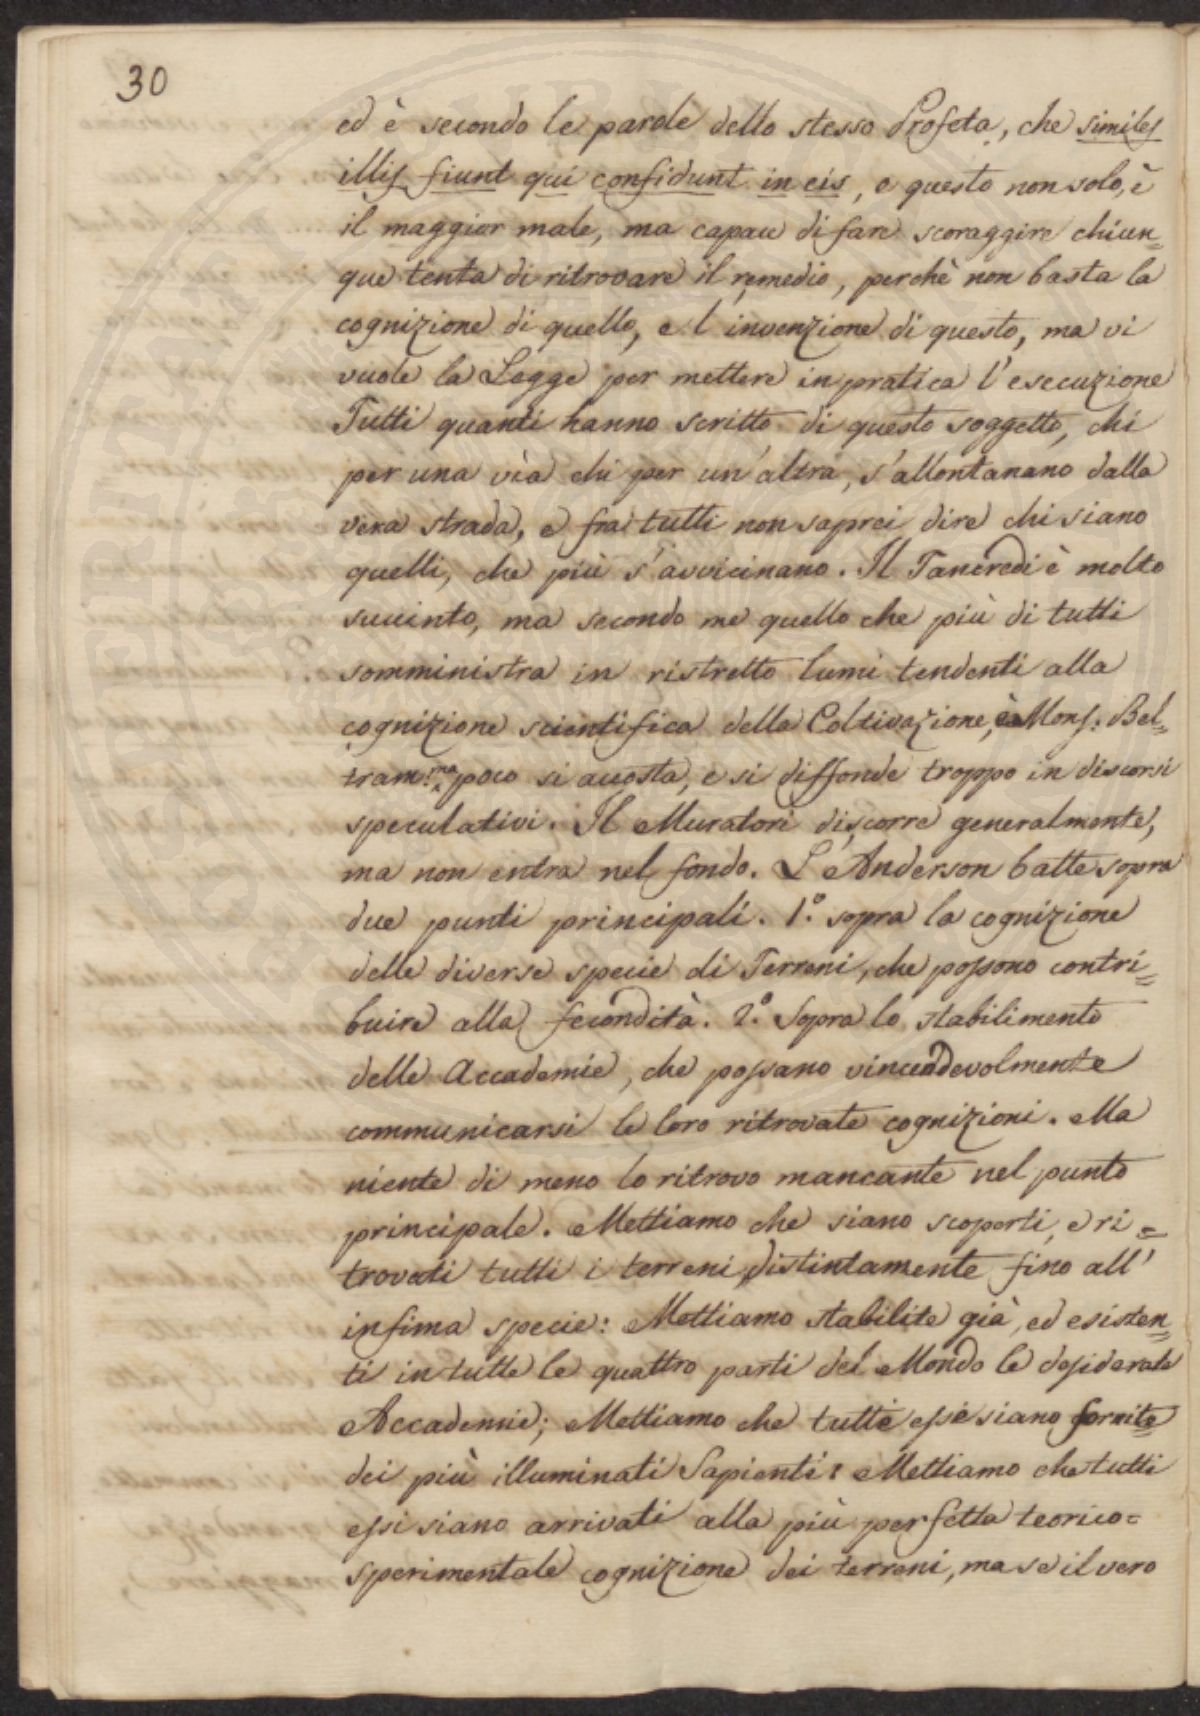 30
ed è secondo le parole dello stesso Profeta, che similes
illis fiunt qui confidunt in eis, e questo non solo, è
il maggior male, ma capace di fare scoraggire chiun=
que tenta di ritrovare il remedio, perchè non basta la
cognizione di quello, e l'invenzione di questo, ma vi
vuole la Legge per mettere in pratica l'esecuzione
Tutti quanti hanno scritto di questo soggetto, chi
per una via chi per un'altra, s'allontanano dalla
vera strada, e fra tutti non saprei dire chi siano
quelli, che più s'avvicinano. Il Tancredi è molto
succinto, ma secondo me quello che più di tutti
somministra in ristretto lumi tendenti alla
cognizione scientifica della Coltivazione, è Mons. Bel=
tram: ma poco si accosta, e si diffonde troppo in discorsi
speculativi. Il Muratori discorre generalmente,
ma non entra nel fondo. L'Anderson batte sopra
due punti principali. 1.° sopra la cognizione
delle diverse specie di Terreni, che possono contri=
buire alla fecondità. 2.° Sopra lo stabilimento
delle Accademie, che possano vincendevolmente
communicarsi le loro ritrovate cognizioni. Ma
niente di meno lo ritrovo mancante nel punto
principale. Mettiamo che siano scoperti, e ri=
trovati tutti i terreni distintamente fino all'
infima specie: Mettiamo stabilite già, ed esisten=
ti in tutte le quattro parti del Mondo le desiderate
Accademie; Mettiamo che tutte esse siano fornite
dei più illuminati Sapienti: Mettiamo che tutti
essi siano arrivati alla più perfetta teorico=
sperimentale cognizione dei terreni, ma se il vero